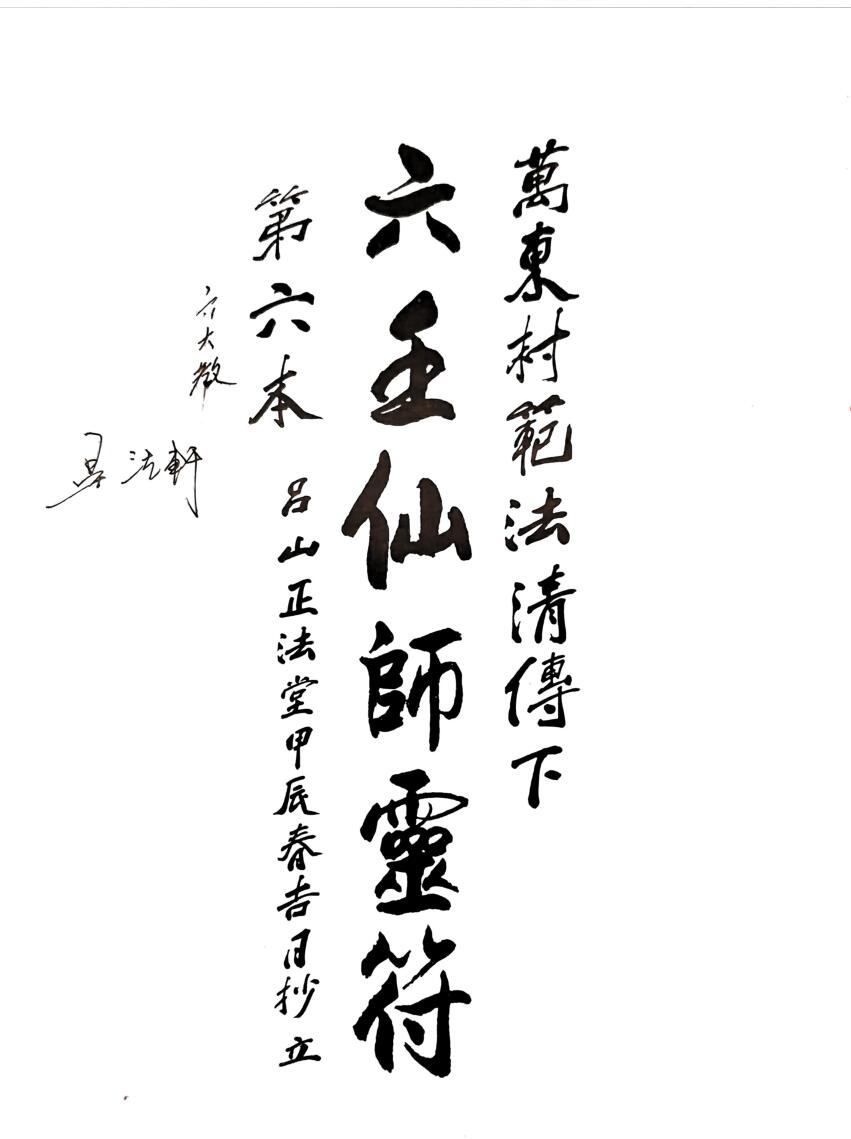 萬東村範法清傳下
六壬仙師靈符
第六本
呂山正法堂甲辰春吉日抄立
大教
法軒